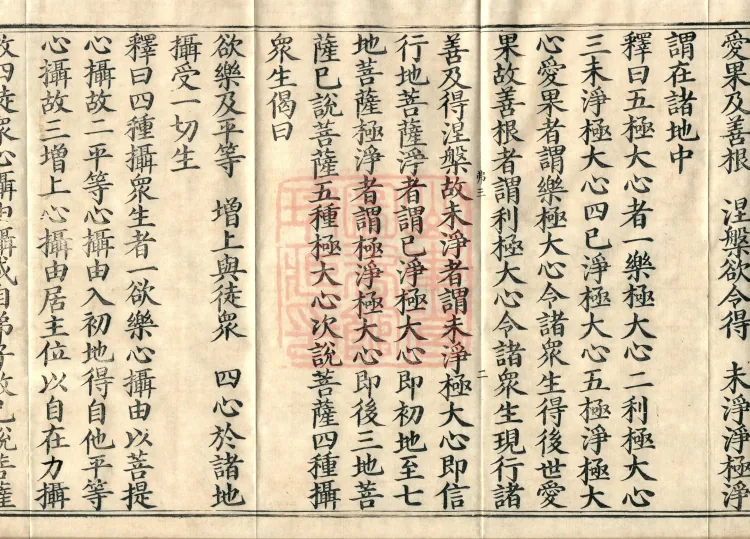 愛果及善根　涅槃欲令得　未淨淨極淨
謂在諸地中
釋曰五極大心者一樂極大心二利極大心
三未淨極大心四已淨極大心五極淨極大
心愛果者謂樂極大心令諸衆生得後世愛
果故善根者謂利極大心令諸衆生現行諸
弟三　二
善及得涅槃故未淨者謂未淨極大心即信
行地菩薩淨者謂已淨極大心即初地至七
地菩薩極淨者謂極淨極大心即後三地菩
薩已說菩薩五種極大心次說菩薩四種攝
衆生偈曰
欲樂及平等　增上與徒衆　四心於諸地
攝受一切生
釋曰四種攝衆生者一欲樂心攝由以菩提
心攝故二平等心攝由入初地得自他平等
心攝故三增上心攝由居主位以自在力攝
故四徒衆心攝由攝成自弟子故已說菩薩